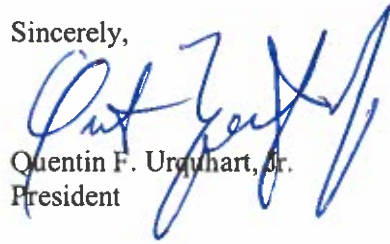 Sincerely,
Quentin F. Urquhart, Jr.
President